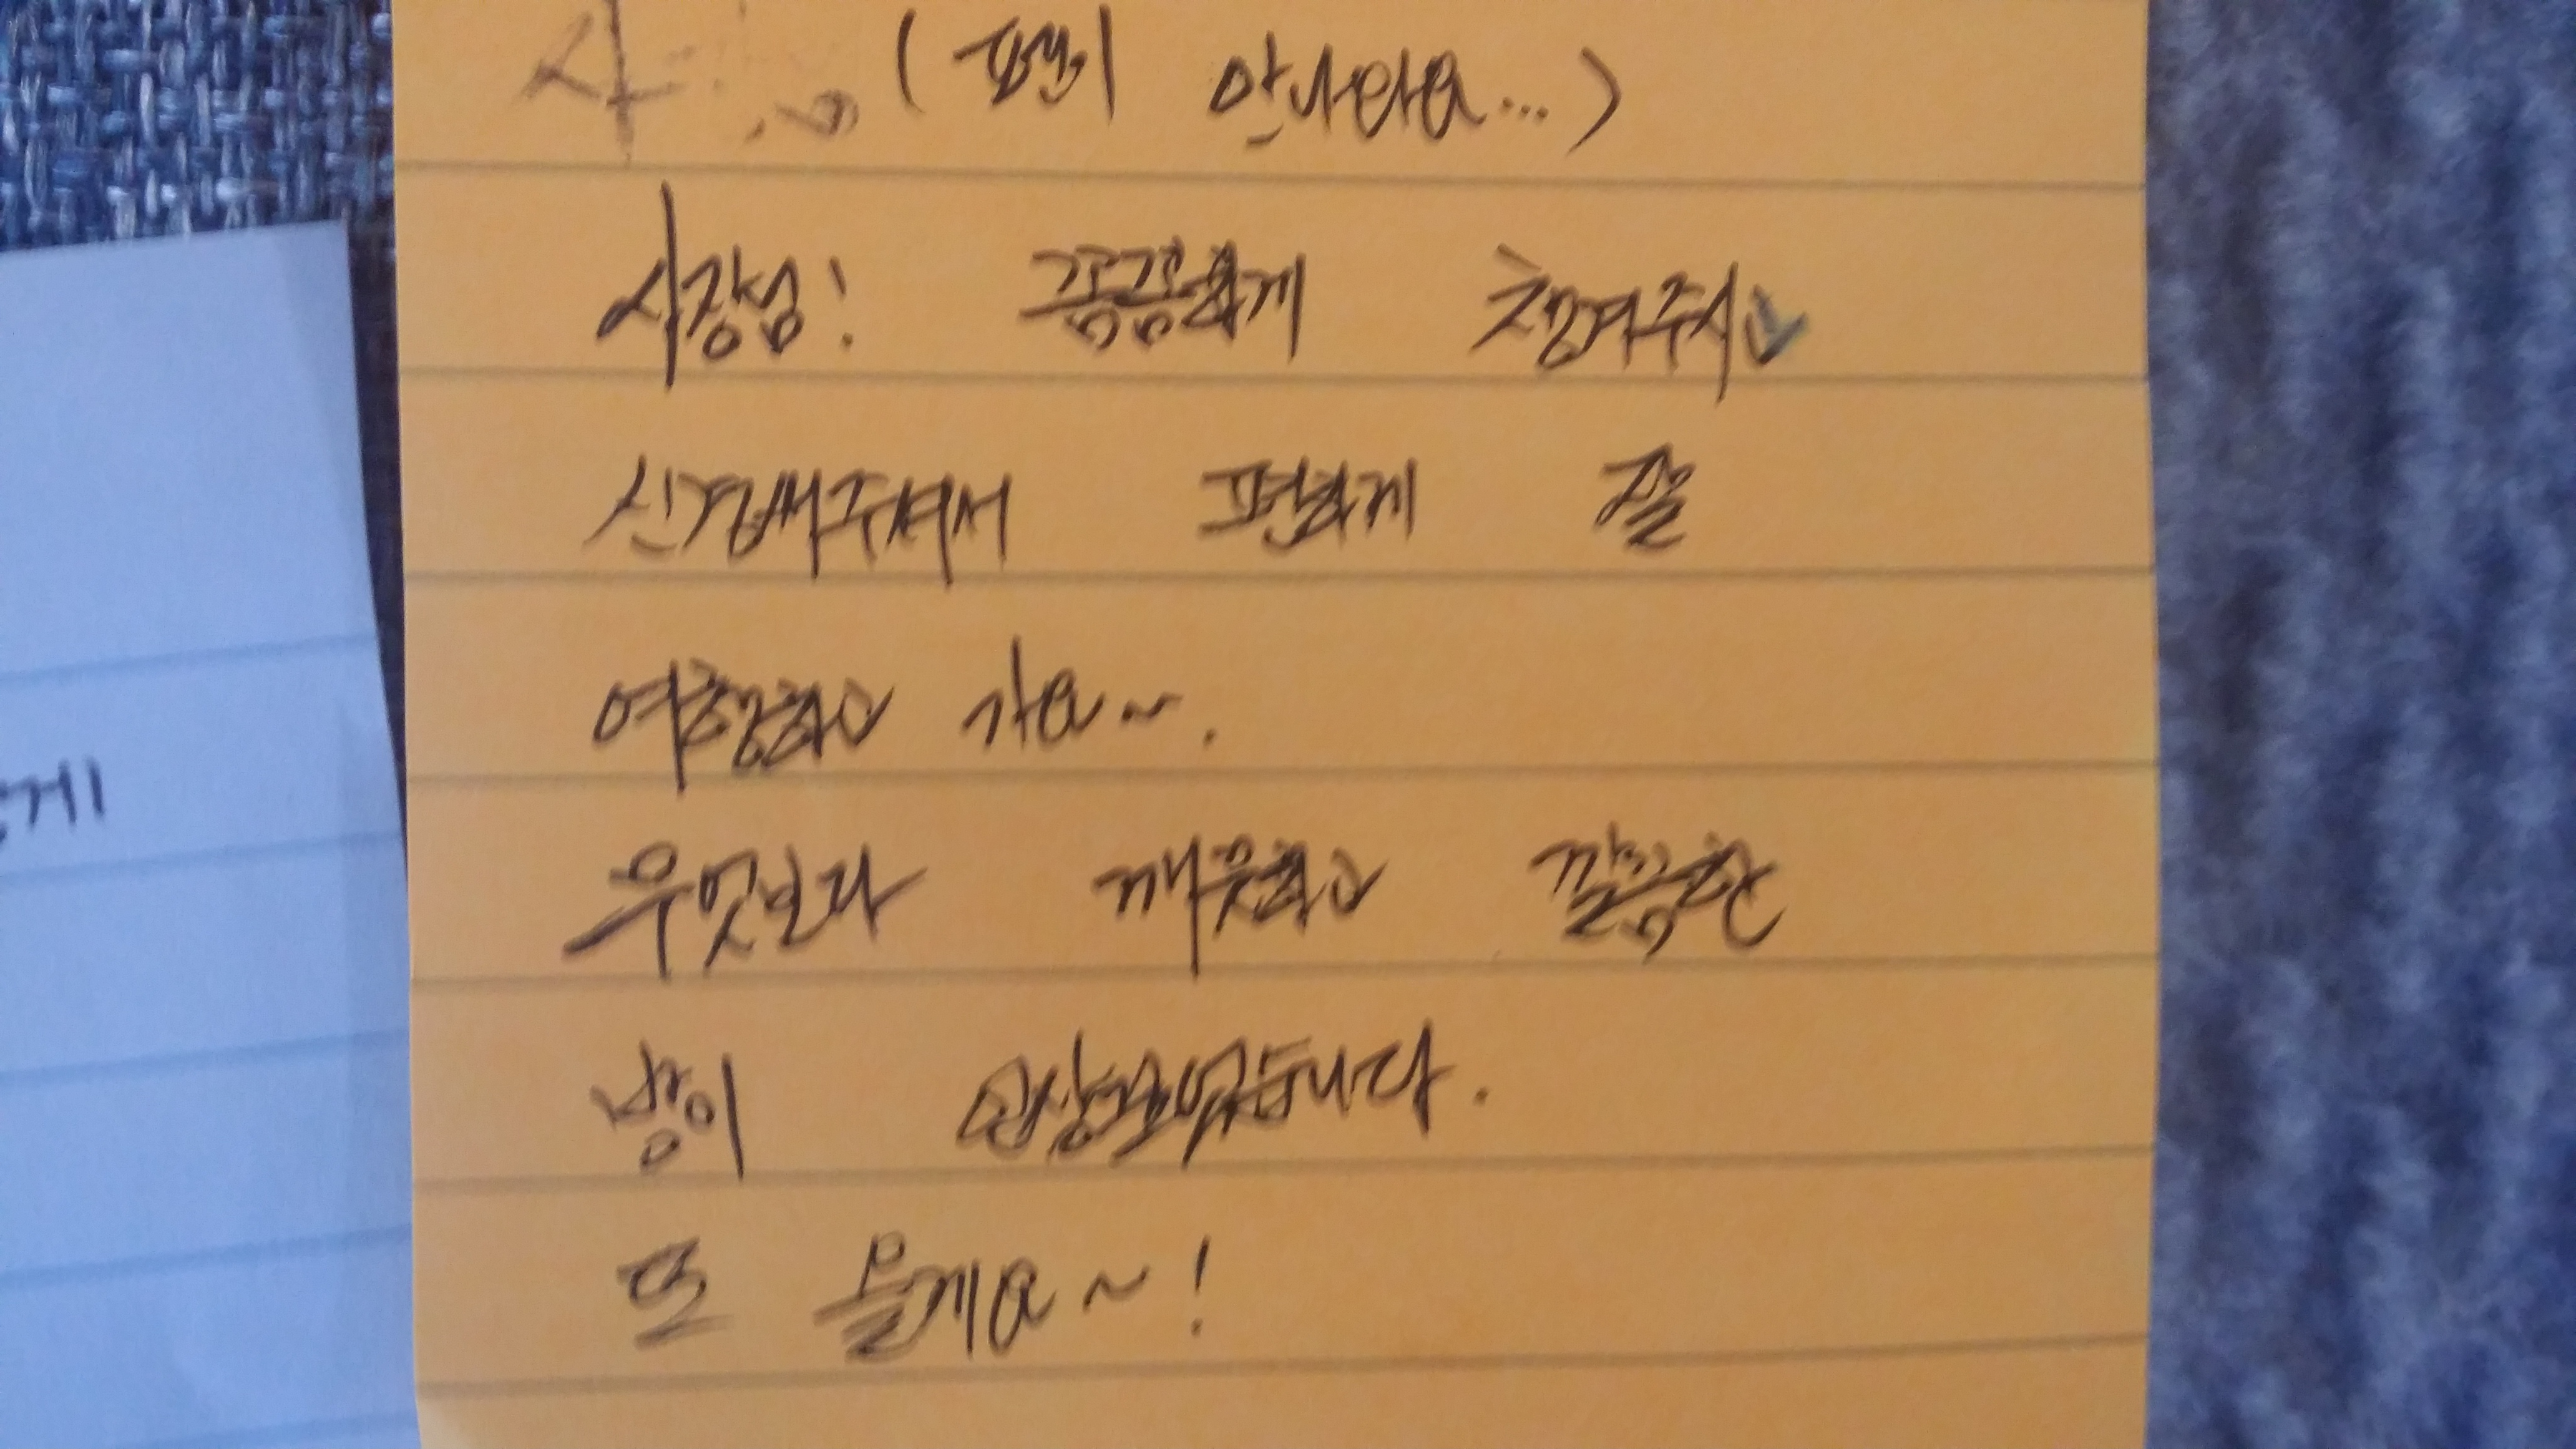 (펜이 안나와요...)
사장님! 꼼꼼하게 챙겨주시고
신경써주셔서 편하게 잘
여행하고 가요~.
무엇보다 깨끗하고 깔끔한
방이 인상깊었습니다.
또 올게요~!
게